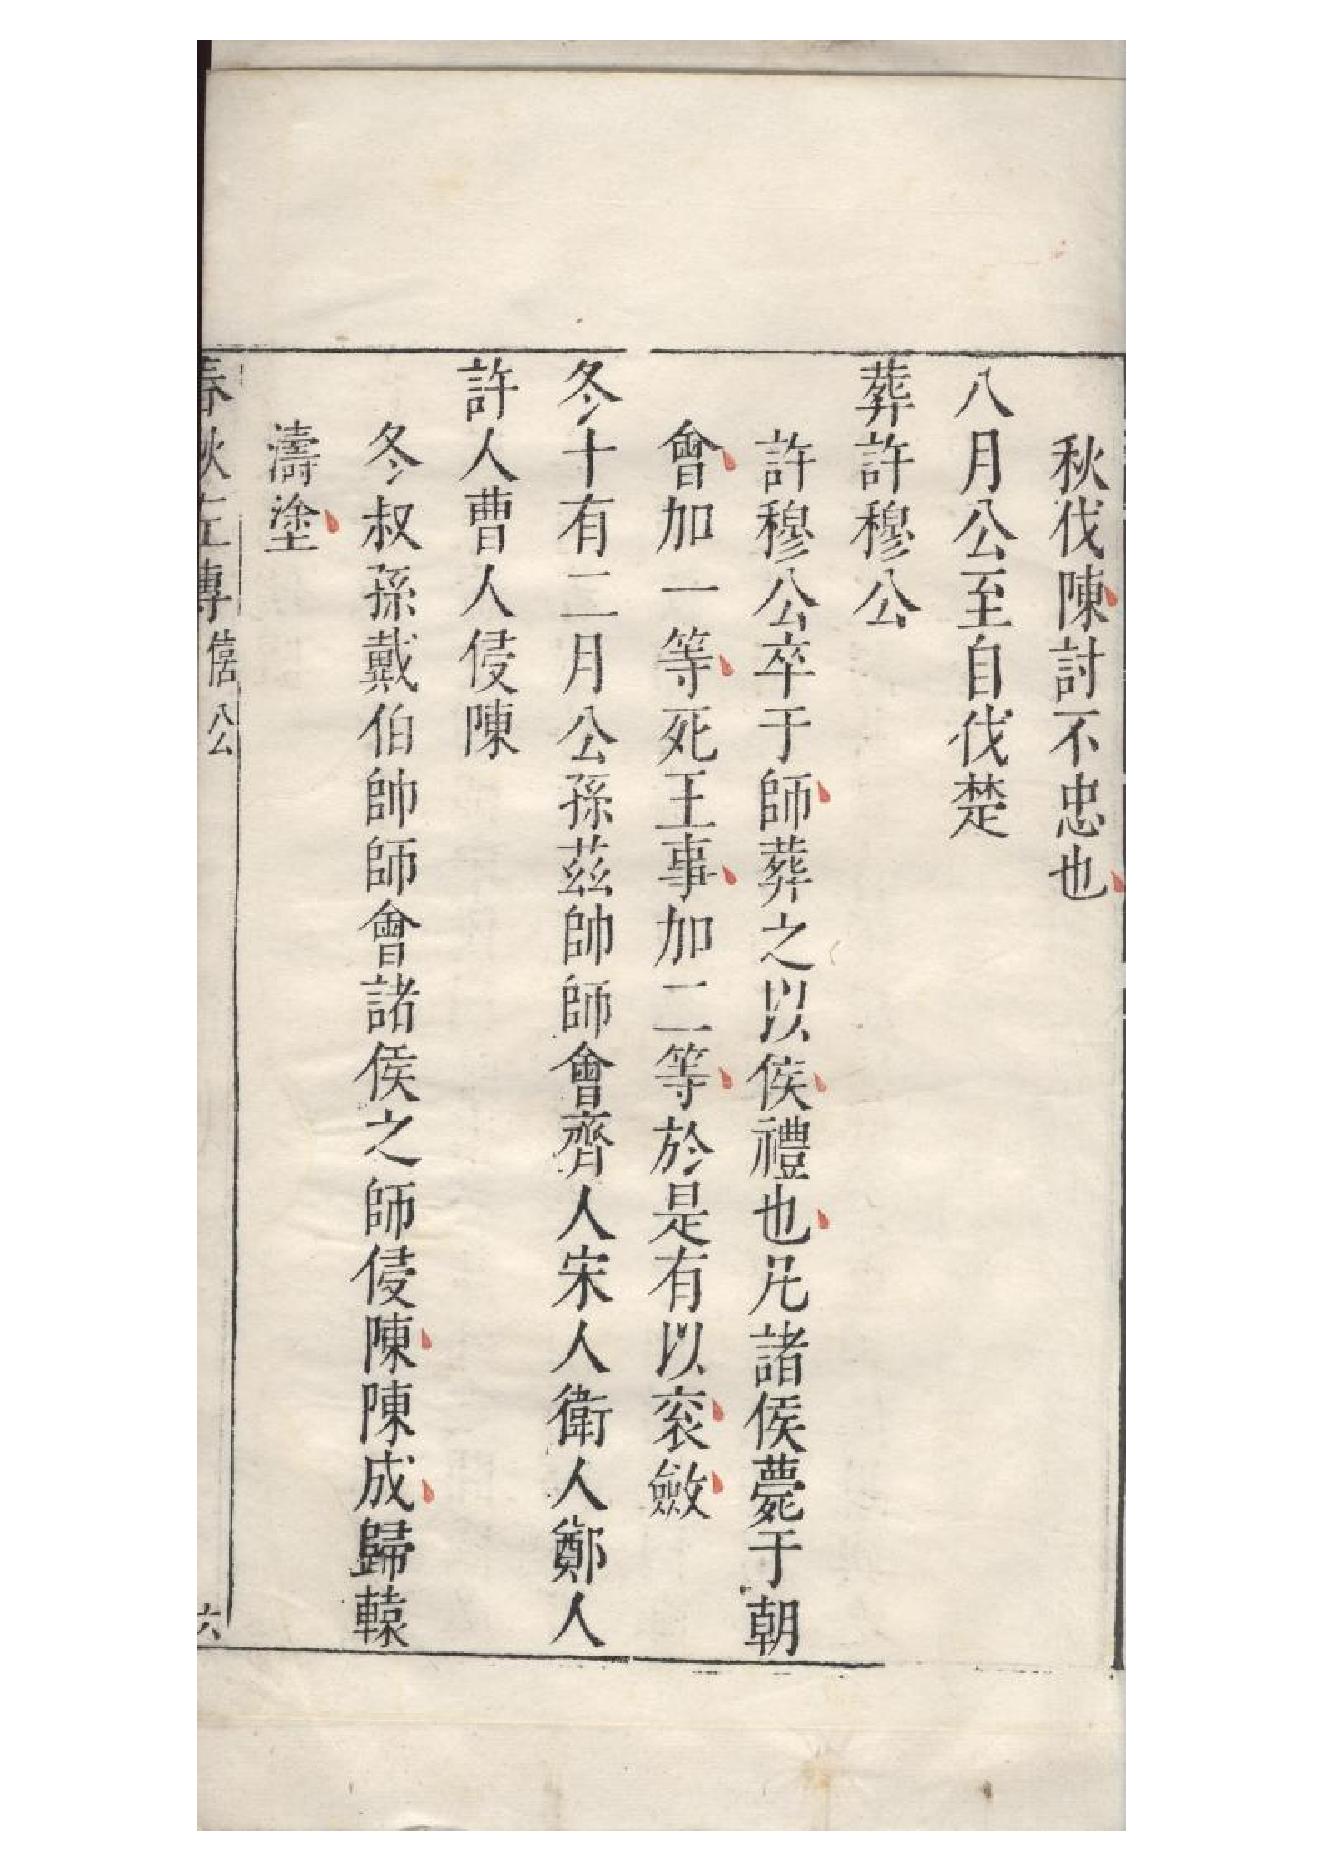 秋伐陳討不忠也
八月公至自伐楚
葬許穆公
許穆公卒于師葬之以侯禮也凡諸侯薨于朝
會加一等死王事加二等於是有以衮斂
冬十有二月公孫茲帥師會齊人宋人衛人鄭人
許人曹人侵陳
冬叔孫戴伯帥師會諸侯之師侵陳陳成歸轅
濤塗
春秋左傳 僖公 六